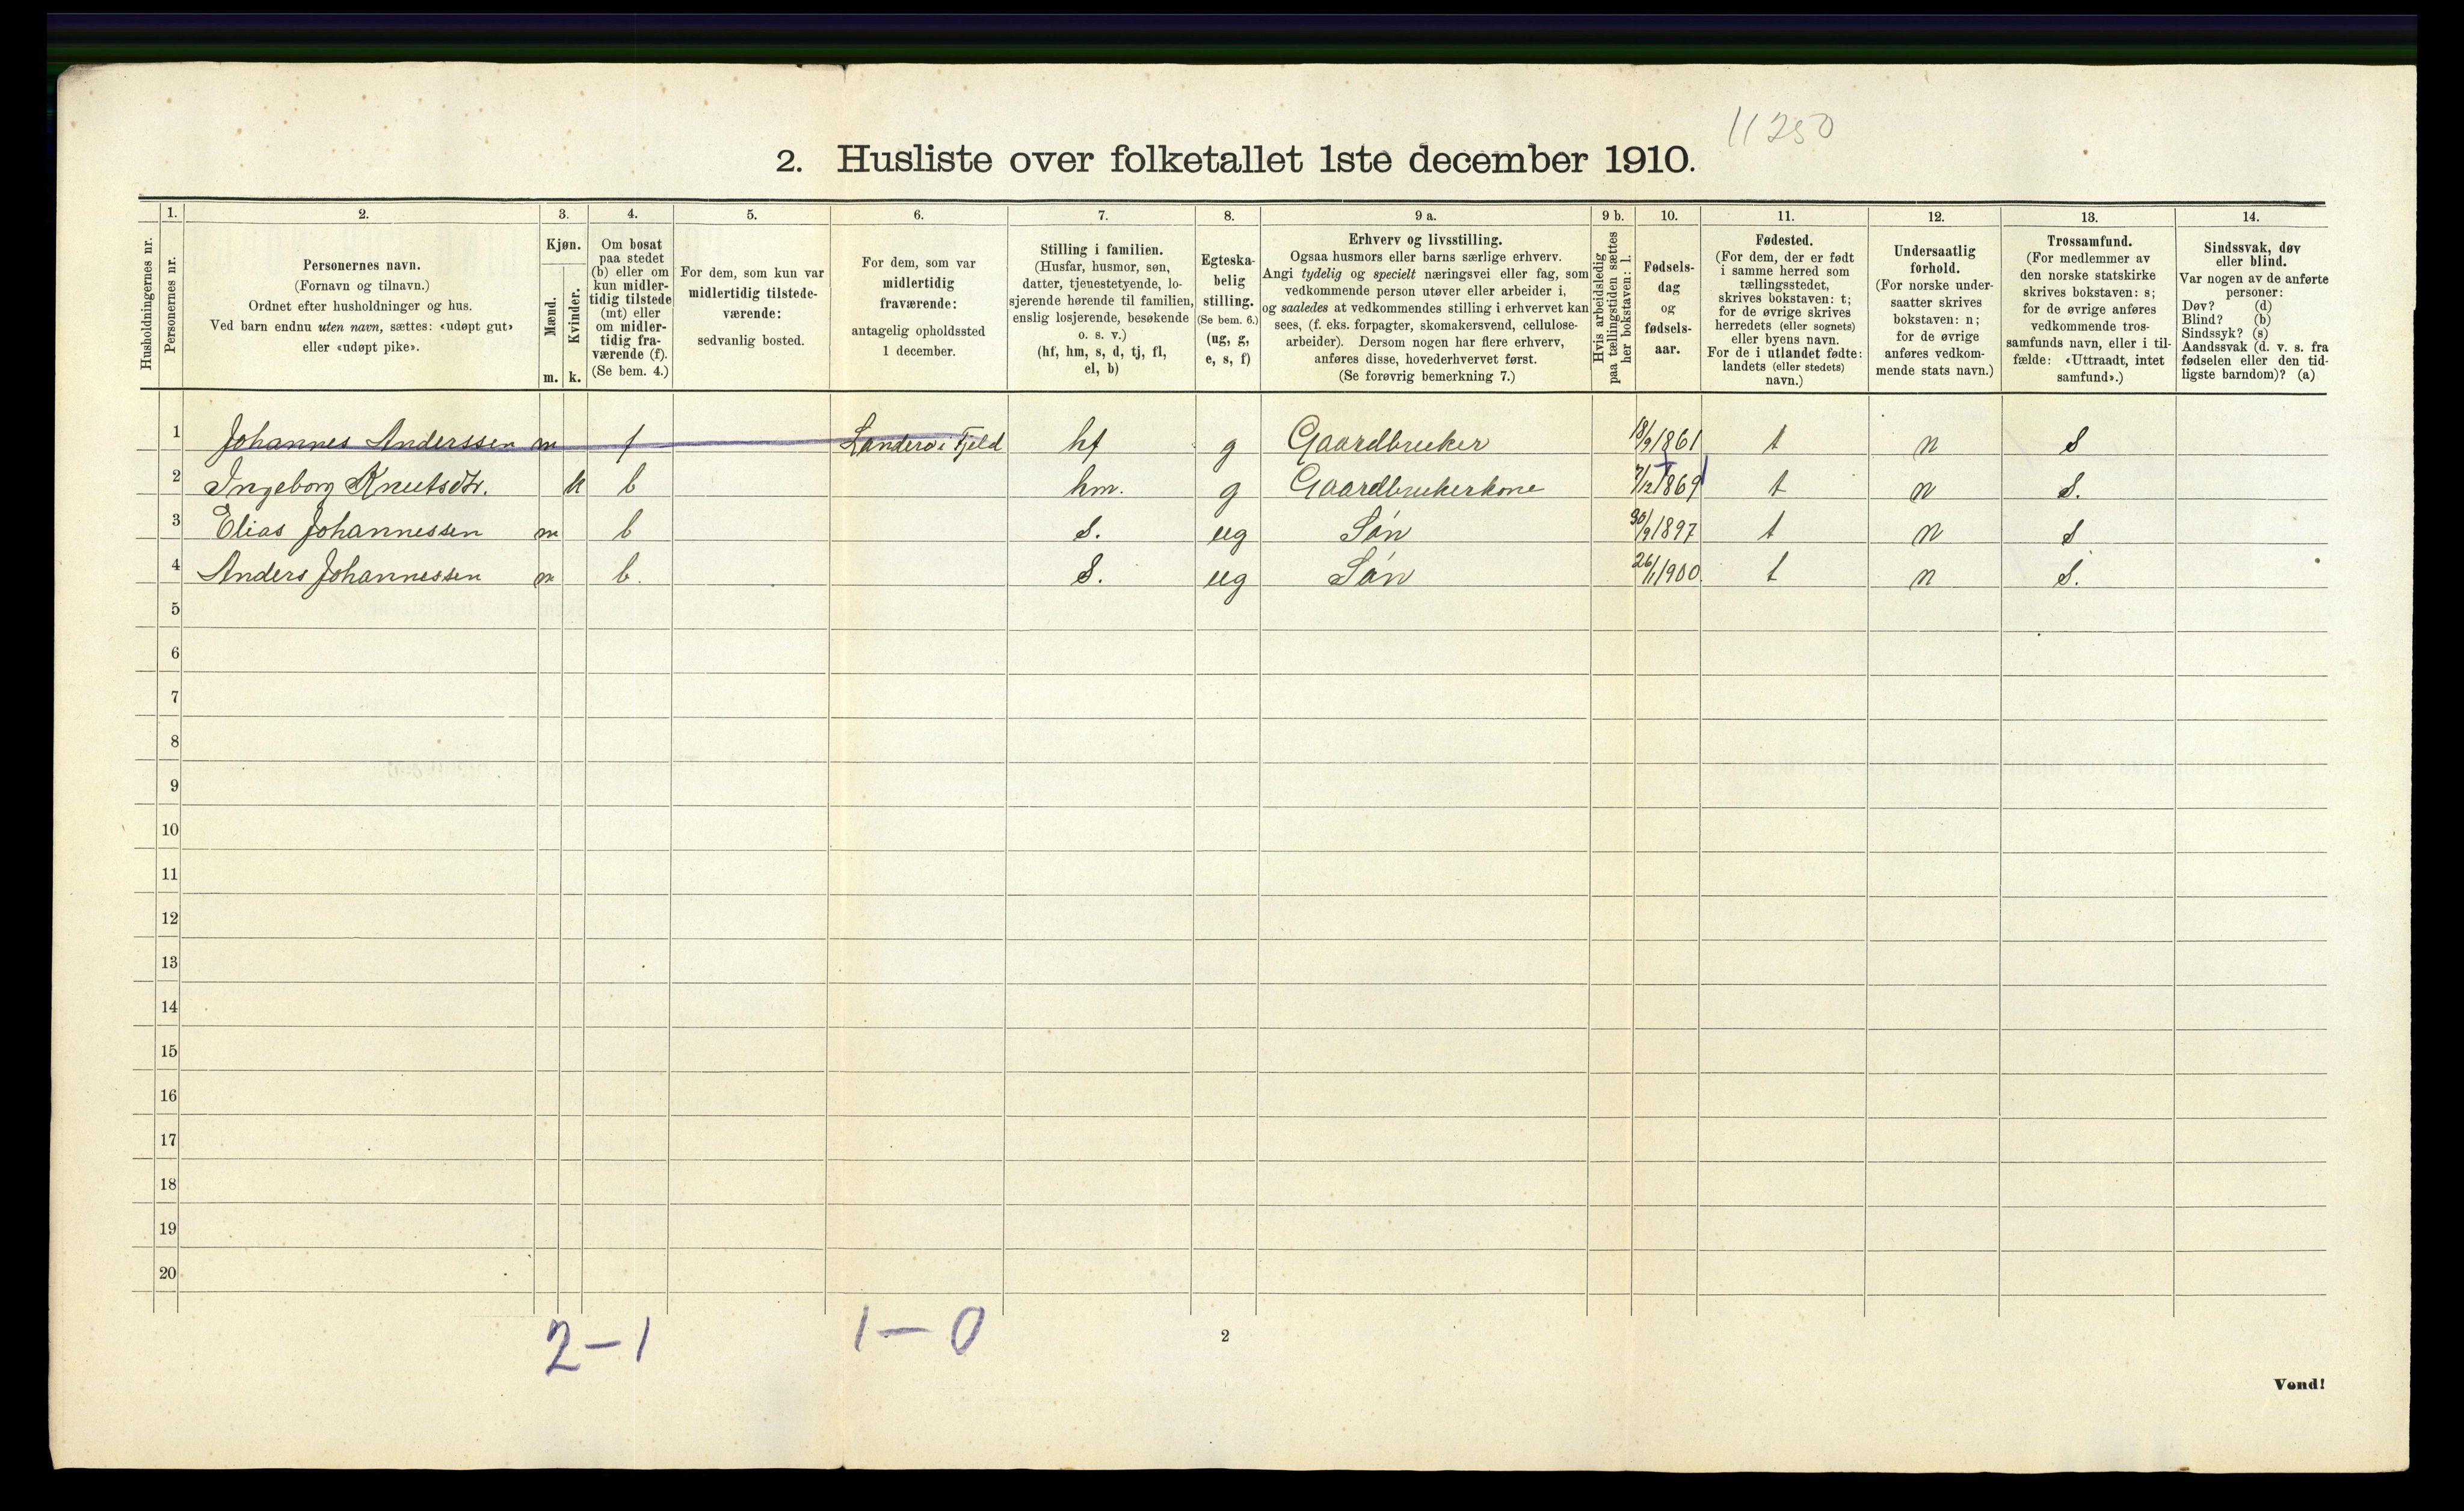 11250
2. Husliste over folketallet 1ste december 1910.
Husholdningernes nr.
1.
Personernes nr.
2.
Personernes navn.
(Fornavn og tilnavn.)
Ordnet efter husholdninger og hus.
Ved barn endnu uten navn, sættes: «udøpt gut»
eller «udøpt pike».
3.
Kjøn.
Mænd.
m.
Kvinder.
k.
4.
Om bosat
paa stedet
(b) eller om
kun midler-
tidig tilstede
(mt) eller
om midler-
tidig fra-
værende (f).
(Se bem. 4.)
5.
For dem, som kun var
midlertidig tilstede-
værende:
sedvanlig bosted.
6.
For dem, som var
midlertidig
fraværende:
antagelig opholdssted
1 december.
7.
Stilling i familien.
(Husfar, husmor, søn,
datter, tjenestetyende, lo-
sjerende hørende til familien,
enslig losjerende, besøkende
o. s. v.)
(hf, hm, s, d, tj, fl,
el, b)
8.
Egteska-
belig
stilling.
(Se bem. 6.)
(ug, g,
e, s, f)
9 a.
Erhverv og livsstilling.
Ogsaa husmors eller barns særlige erhverv.
Angi tydelig og specielt næringsvei eller fag, som
vedkommende person utøver eller arbeider i,
og saaledes at vedkommendes stilling i erhvervet kan
sees, (f. eks. forpagter, skomakersvend, cellulose-
arbeider). Dersom nogen har flere erhverv,
anføres disse, hovederhvervet først.
(Se forøvrig bemerkning 7.)
9 b.
Hvis arbeidsledig
paa tællingstiden sættes
her bokstaven: l.
10.
Fødsels-
dag
og
fødsels-
aar.
11.
Fødested.
(For dem, der er født
i samme herred som
tællingsstedet,
skrives bokstaven: t;
for de øvrige skrives
herredets (eller sognets)
eller byens navn.
For de i utlandet fødte:
landets (eller stedets)
navn.)
12.
Undersaatlig
forhold.
(For norske under-
saatter skrives
bokstaven: n;
for de øvrige
anføres vedkom-
mende stats navn.)
13.
Trossamfund.
(For medlemmer av
den norske statskirke
skrives bokstaven: s;
for de øvrige anføres
vedkommende tros-
samfunds navn, eller i til-
fælde: «Uttraadt, intet
samfund».)
14.
Sindssvak, døv
eller blind.
Var nogen av de anførte
personer:
Døv? (d)
Blind? (b)
Sindssyk? (s)
Aandssvak (d. v. s. fra
fødselen eller den tid-
ligste barndom)? (a)
1 Johannes Anderssen m f Landerø i Fjeld hf g Gaardbruker 18/9 1861 t n S
2 Ingeborg Knutsdtr. k b hm. g Gaardbrukerkone 7/12 1869 t n S.
3 Elias Johannessen m b S. ug Søn 30/9 1897 t n S
4 Anders Johannessen m b. S. ug Søn 26/1 1900 t n S.
5
6
7
8
9
10
11
12
13
14
15
16
17
18
19
20
2-1 1-0
2
Vend!